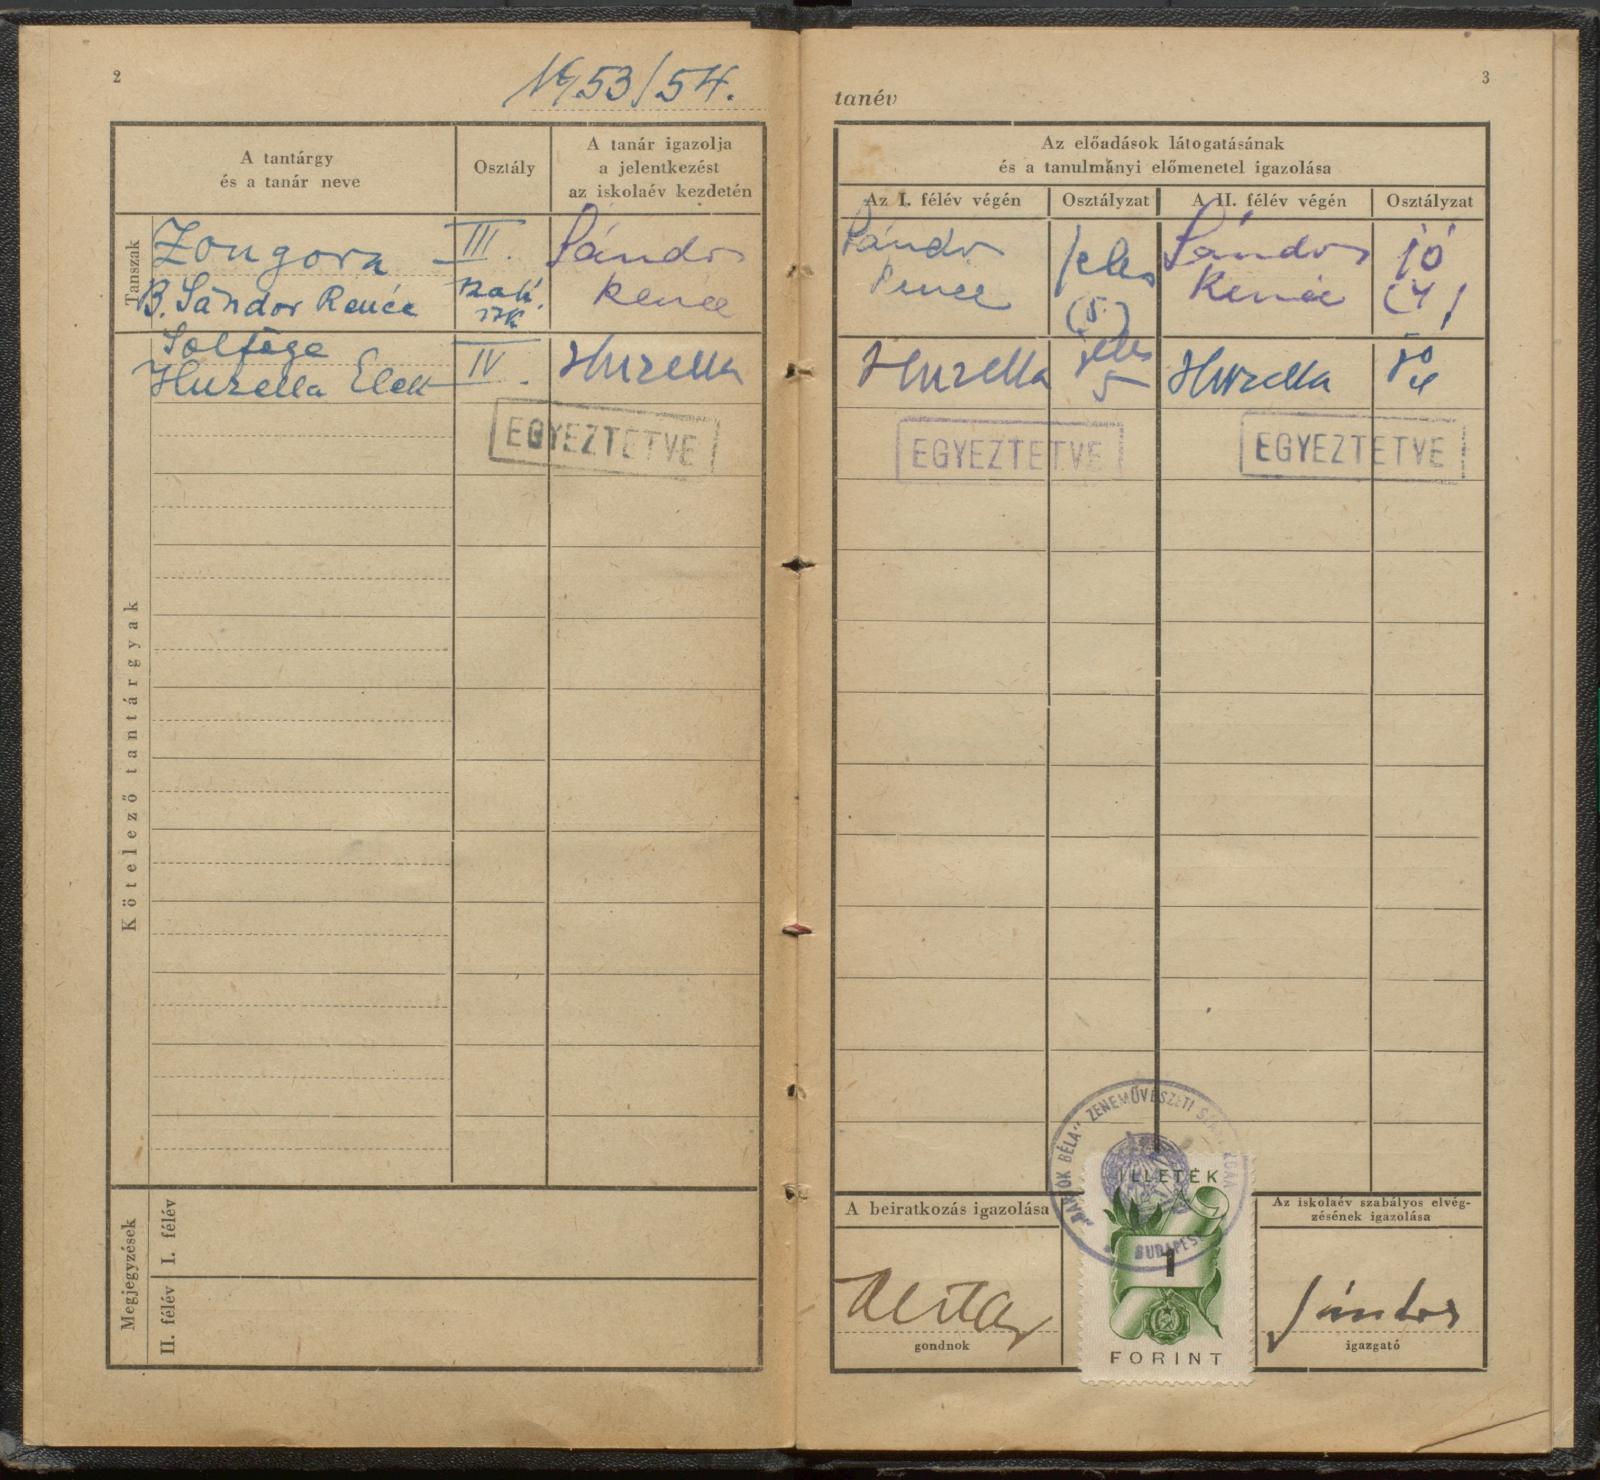 2
1953/54.
A tantárgy
és a tanár neve
Osztály
A tanár igazolja
a jelentkezést
az iskolaév kezdetén
Tanszak
Zongora
B. Sándor Renée
III.
Sándor
Renée
Solfége
Hurella Elek
IV.
Hurella
EGYEZTETVE
Kötelező tantárgyak
Megjegyzések
I. félév
II. félév
3
tanév
Az előadások látogatásának
és a tanulmányi előmenetel igazolása
Az I. félév végén
Osztályzat
A II. félév végén
Osztályzat
Sándor
Renée
jeles
(5.)
Sándor
Renée
jó
(4)
Hurella
jeles
5
Hurella
jó
4
EGYEZTETVE
EGYEZTETVE
"BARTÓK BÉLA" ZENEMŰVÉSZETI
BUDAPEST
ILLETÉK
1
FORINT
A beiratkozás igazolása
gondnok
Az iskolaév szabályos elvég-
zésének igazolása
Sándor
igazgató